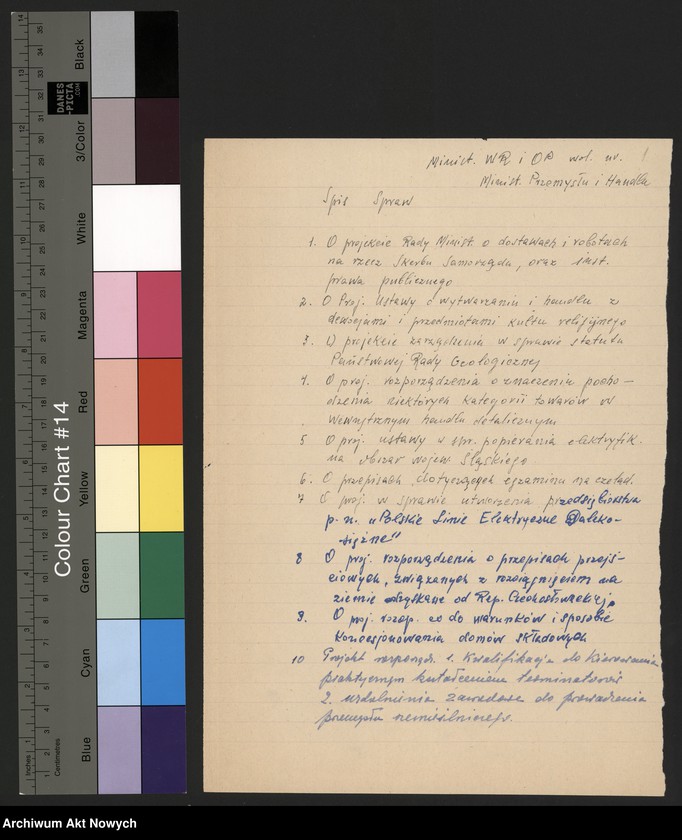 Minist. WR i OP wol. nr.
Minist. Przemysłu i Handlu
Spis Spraw
1. O projekcie Rady Minist. o dostawach i robotach
na rzecz Skarbu Samorządu, oraz inst.
prawa publicznego
2. O Proj. Ustawy o wytwarzaniu i handlu z
dewocjami i przedmiotami kultu religijnego
3. O projekcie zarządzenia w sprawie statutu
Państwowej Rady Geologicznej
4. O proj. rozporządzenia o znaczeniu pocho-
dzenia niektórych kategorii towarów w
wewnętrznym handlu detalicznym
5 O proj. ustawy w spr. popierania elektryfik.
na obszar wojew. Śląskiego
6. O przepisach dotyczących egzaminu na czelad.
7 O proj. w sprawie utworzenia przedsiębiorstwa
p. n. „Polskie Linie Elektryczne Daleko-
siężne"
8 O proj. rozporządzenia o przepisach przejś-
ciowych, związanych z rozciągnięciem na
ziemie odzyskane od Rep. Czechosłowackiej.
9. O proj. rozp. co do warunków i sposobie
koncesjonowania domów składowych
10 Projekt rozporządz. 1. Kwalifikacja do kierowania
praktycznym kształceniem terminatorów
2. uzdolnienia zawodowe do prowadzenia
przemysłu rzemieślniczego.
Colour Chart #14
DANES
-PICTA
.COM
Black
3/Color
White
Magenta
Red
Yellow
Green
Cyan
Blue
Inches
Centimetres
Archiwum Akt Nowych